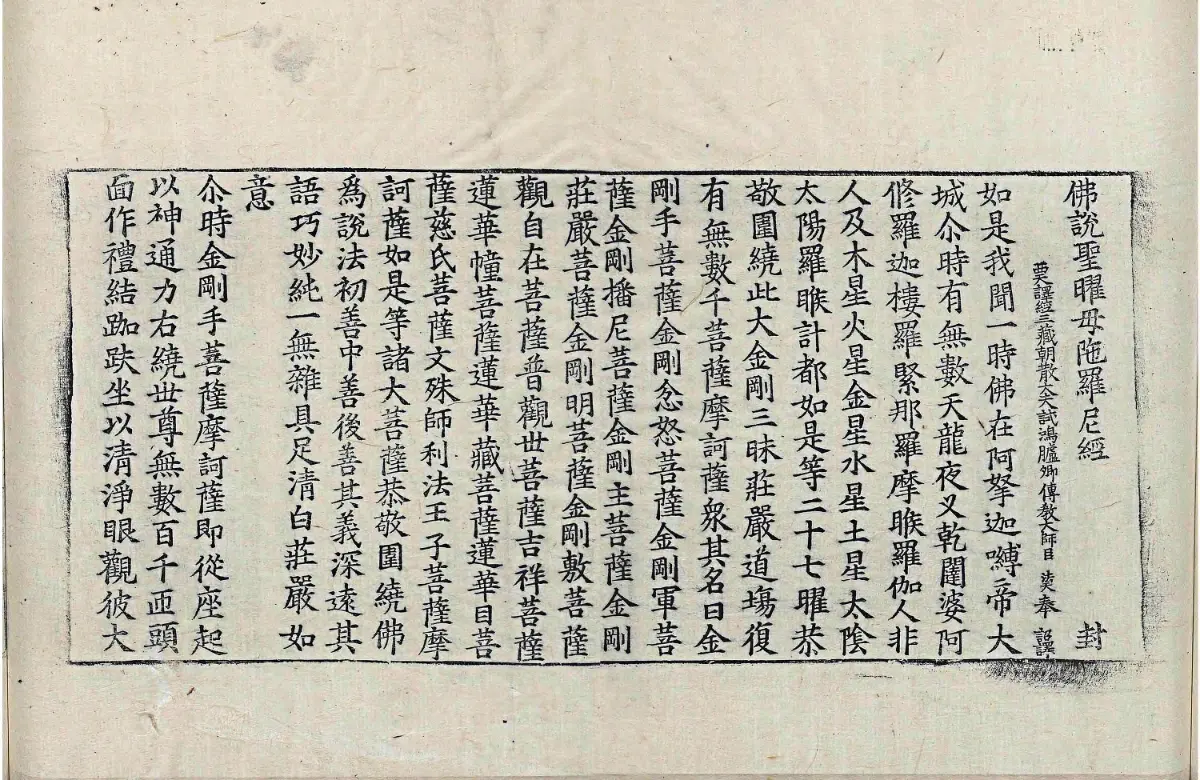 佛說聖曜母陁羅尼經 封
西天譯經三藏朝散大夫試鴻臚卿傳教大師臣 奉 詔譯
如是我聞一時佛在阿拏迦嚩帝大
城尒時有無數天龍夜叉乾闥婆阿
修羅迦樓羅緊那羅摩睺羅伽人非
人及木星火星金星水星土星太陰
太陽羅睺計都如是等二十七曜恭
敬圍繞此大金剛三昧莊嚴道塲復
有無數千菩薩摩訶薩衆其名曰金
剛手菩薩金剛忿怒菩薩金剛軍菩
薩金剛播尼菩薩金剛主菩薩金剛
莊嚴菩薩金剛明菩薩金剛敷菩薩
觀自在菩薩普觀世菩薩吉祥菩薩
蓮華幢菩薩蓮華藏菩薩蓮華目菩
薩慈氏菩薩文殊師利法王子菩薩摩
訶薩如是等諸大菩薩恭敬圍繞佛
爲說法初善中善後善其義深遠其
語巧妙純一無雜具足清白莊嚴如
意
尒時金剛手菩薩摩訶薩即從座起
以神通力右繞世尊無數百千匝頭
面作禮結跏趺坐以清淨眼觀彼大